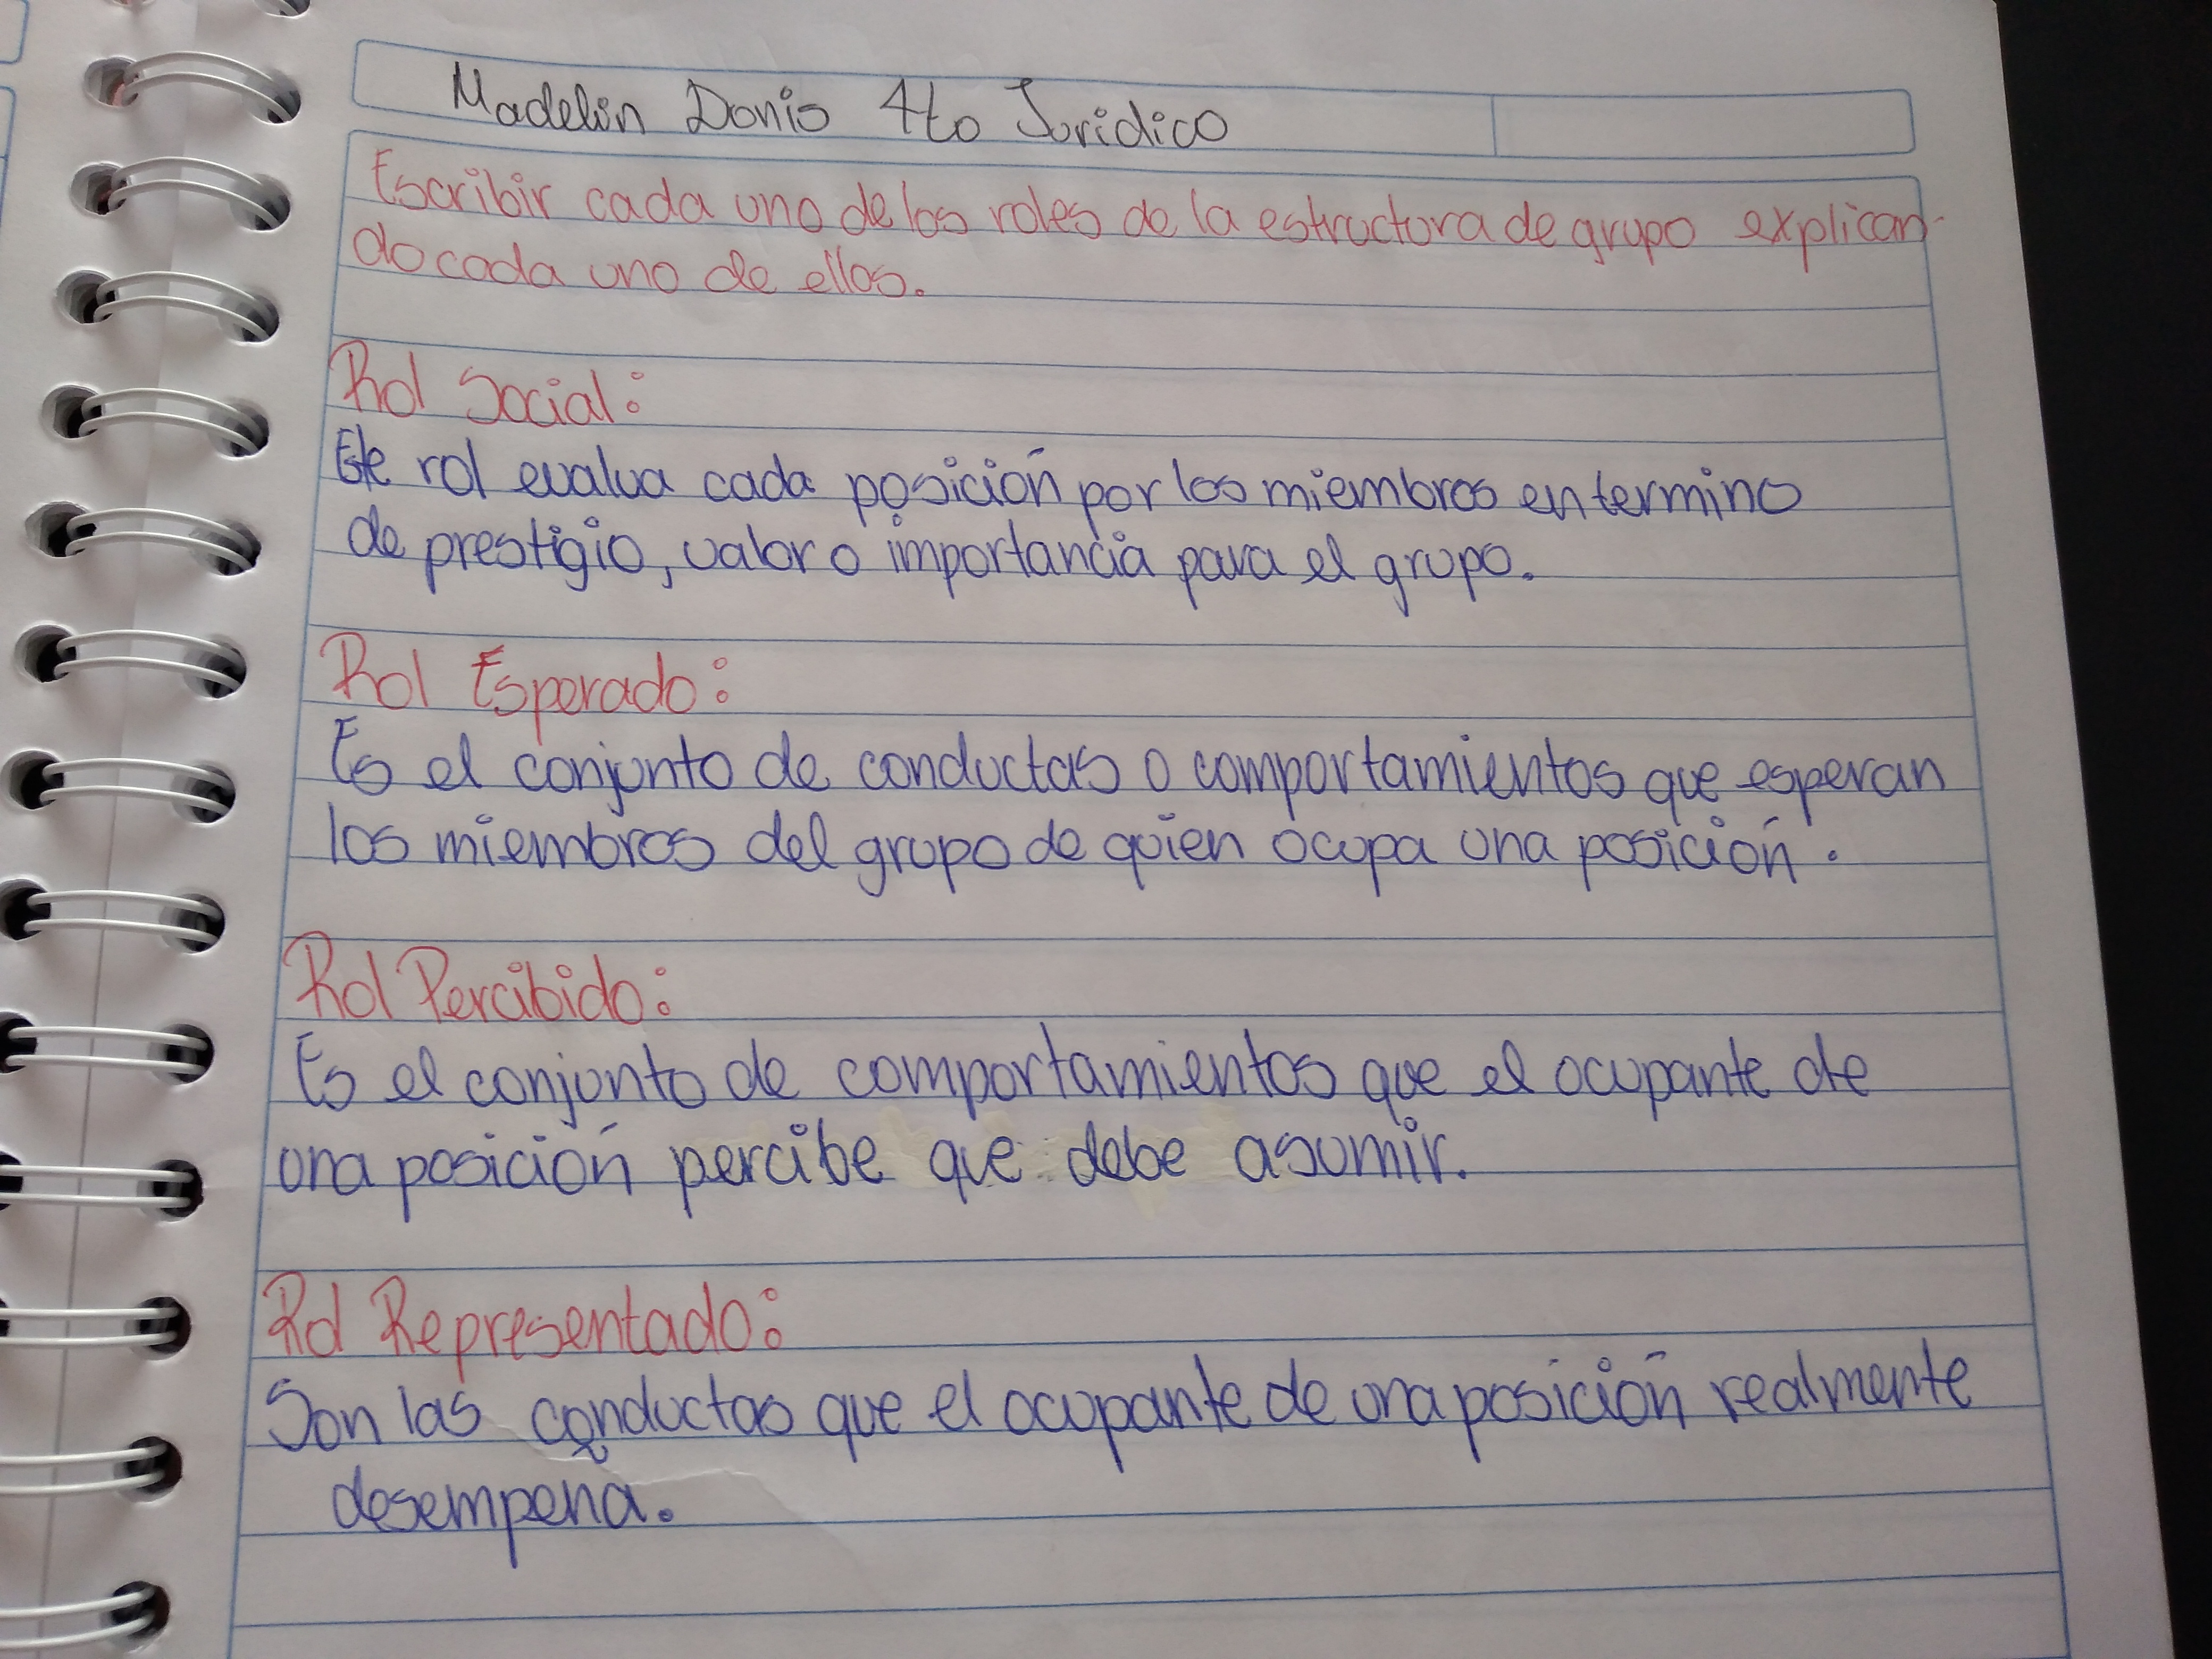 Madelin Donis 4to Juridico
Escribir cada uno de los roles de la estructura de grupo explican-
do cada uno de ellos.
Rol Social:
Este rol evalua cada posición por los miembros en termino
de prestigio, valor o importancia para el grupo.
Rol Esperado:
Es el conjunto de conductas o comportamientos que esperan
los miembros del grupo de quien ocupa una posición.
Rol Percibido:
Es el conjunto de comportamientos que el ocupante de
una posición percibe que debe asumir.
Rol Representado:
Son las conductas que el ocupante de una posición realmente
desempeña.